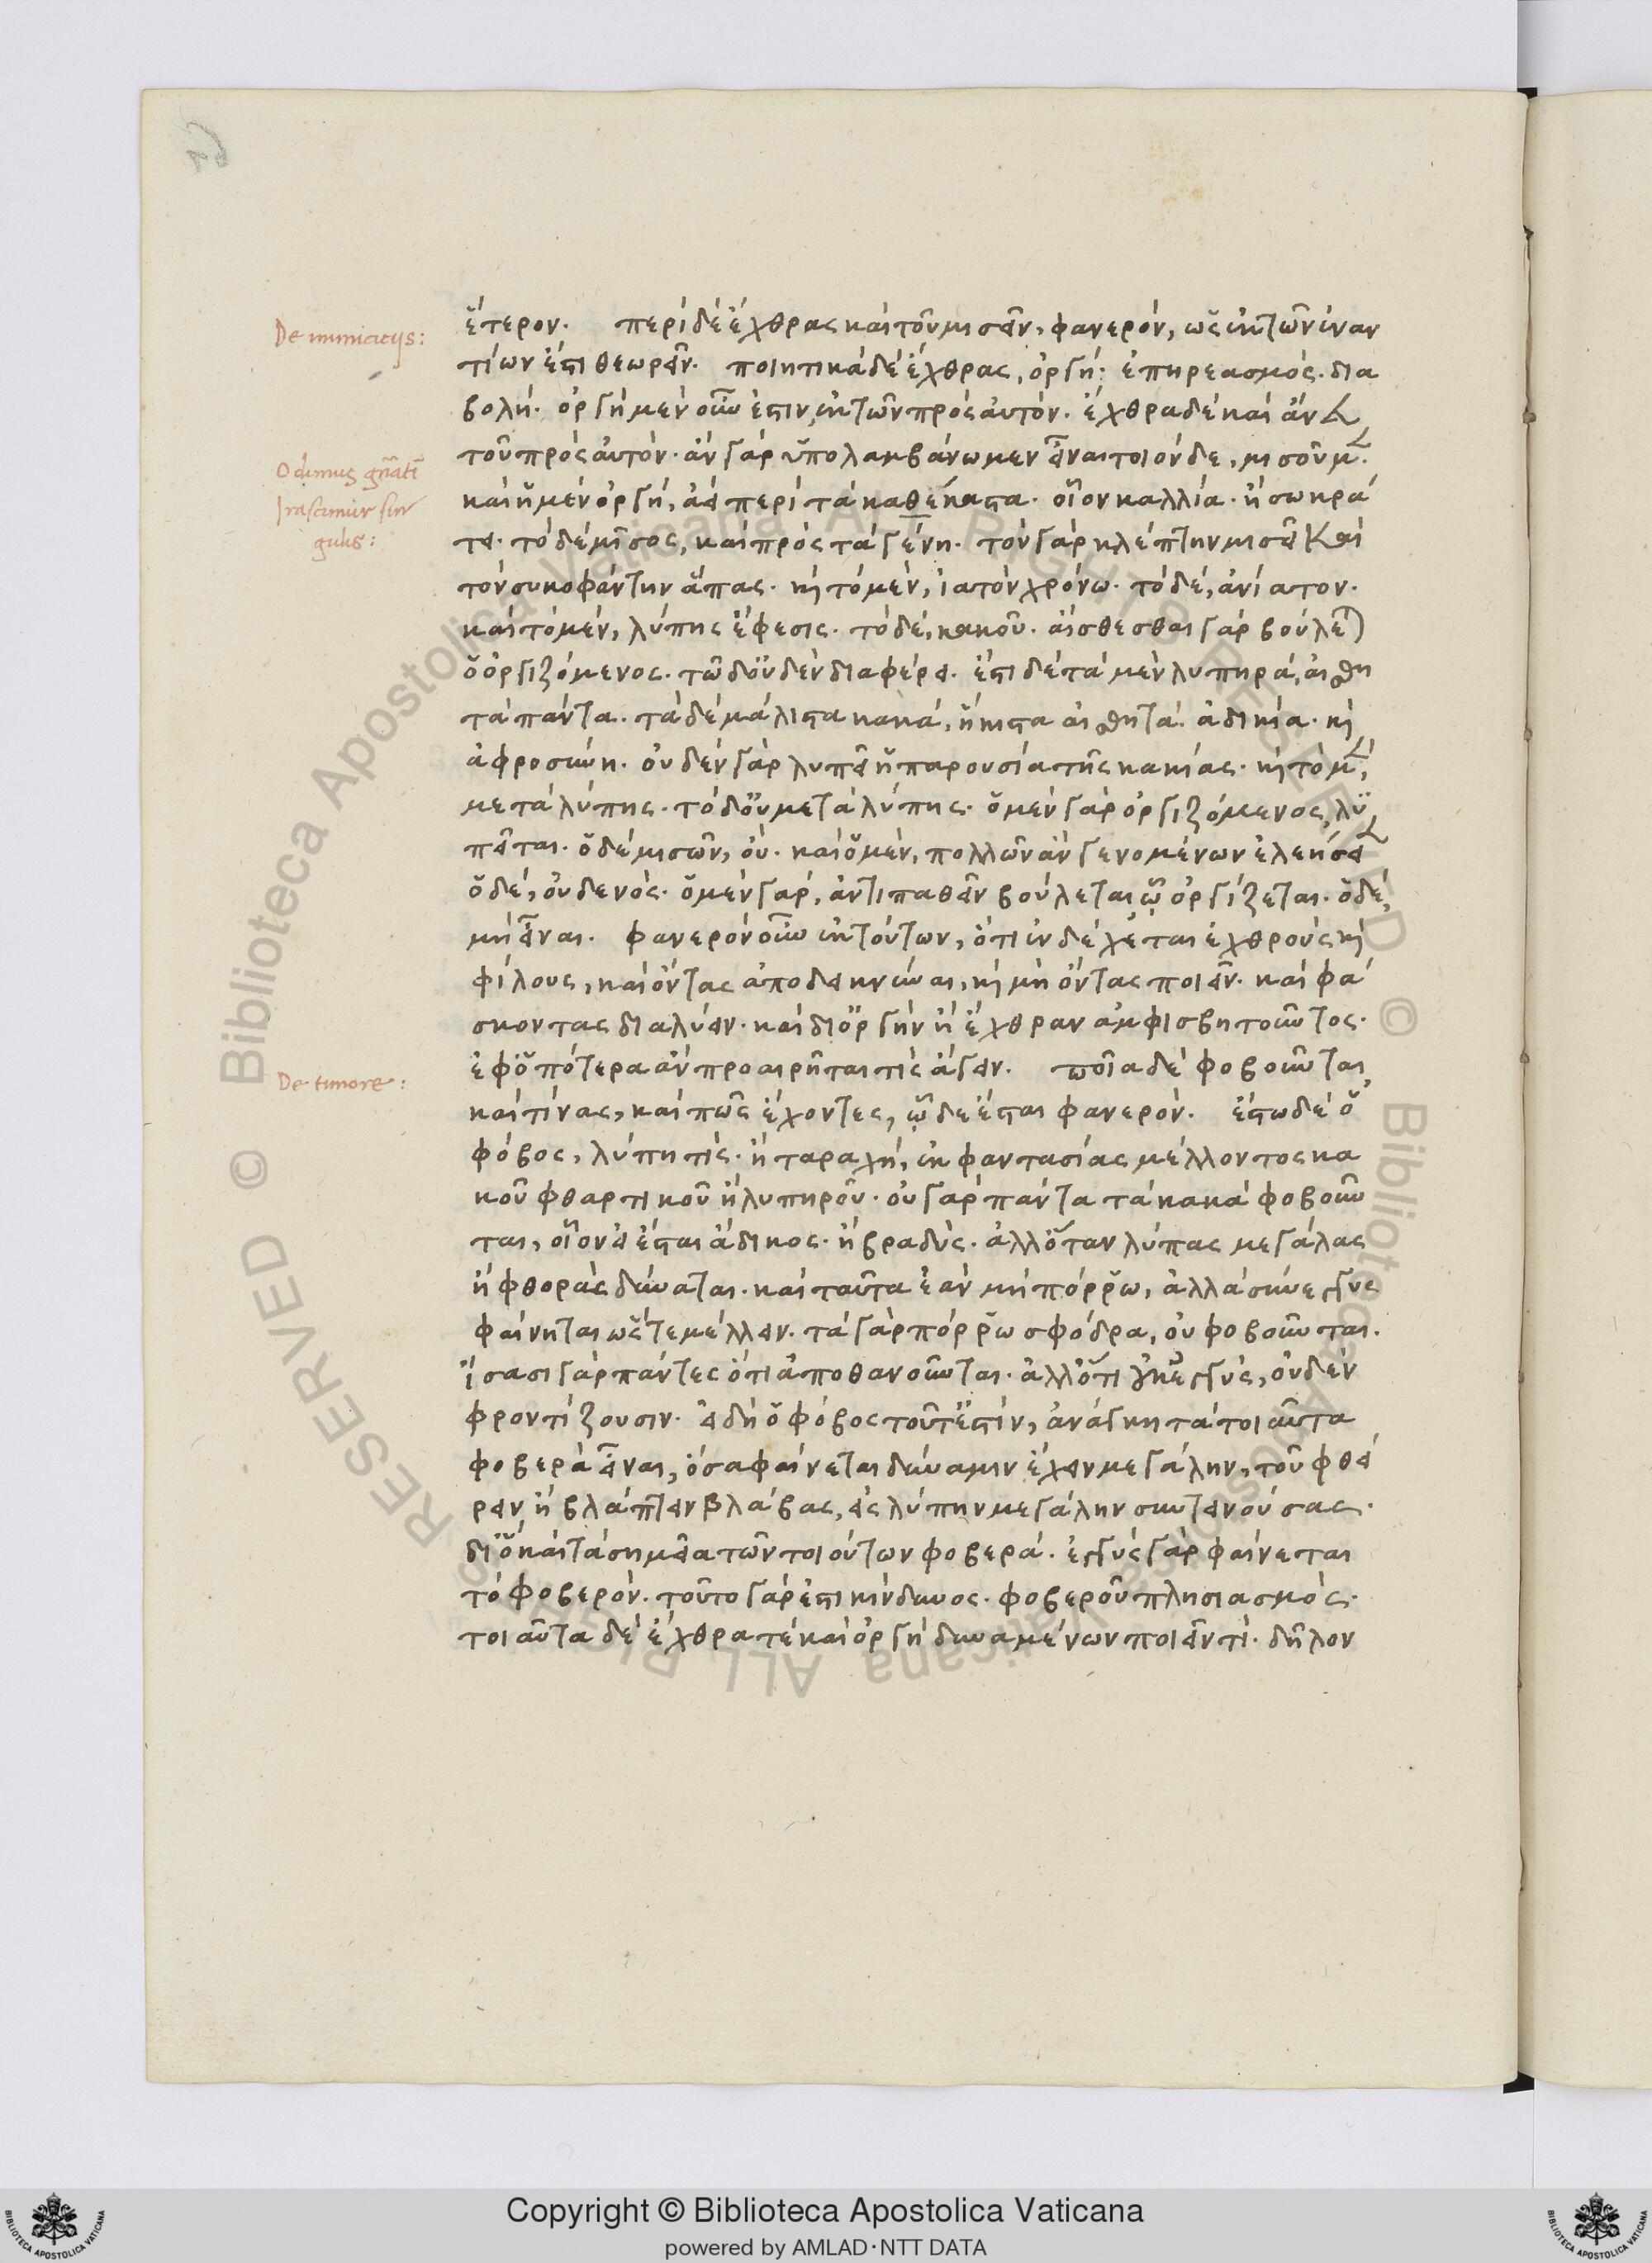 De inimicitijs:
Odimus gñati
Irascimur sin
gulis:
De timore:
ἕτερον. περὶ δὲ ἔχθρας καὶ τοῦ μισεῖν, φανερὸν, ὡς ἐκ τῶν ἐναν
τίων ἔστι θεωρεῖν. ποιητικὰ δὲ ἔχθρας, ὀργή· ἐπηρεασμός. δια
βολή. ὀργὴ μὲν οὖν ἐστιν ἐκ τῶν πρὸς αὐτόν. ἔχθρα δὲ καὶ ἄνευ
τοῦ πρὸς αὐτόν. ἂν γὰρ ὑπολαμβάνωμεν εἶναι τοιόνδε, μισοῦμεν.
καὶ ἡ μὲν ὀργὴ, ἀεὶ περὶ τὰ καθέκαστα. οἷον καλλία. ἢ σωκρά
τει. τὸ δὲ μῖσος, καὶ πρὸς τὰ γένη. τὸν γὰρ κλέπτην μισεῖ καὶ
τὸν συκοφάντην ἅπας. καὶ τὸ μὲν, ἰατὸν χρόνω. τὸ δὲ, ἀνίατον.
καὶ τὸ μὲν, λύπης ἔφεσις. τὸ δὲ, κακοῦ. αἴσθεσθαι γὰρ βούλεται
ὁ ὀργιζόμενος. τῶ δ' οὐδὲν διαφέρει. ἔστι δὲ τὰ μὲν λυπηρὰ, αἰσθη
τὰ πάντα. τὰ δὲ μάλιστα κακὰ, ἥκιστα αἰσθητά. ἀδικία. καὶ
ἀφροσύνη. οὐδὲν γὰρ λυπεῖ ἡ παρουσία τῆς κακίας. καὶ τὸ μὲν,
μετὰ λύπης. τὸ δ' οὐ μετὰ λύπης. ὁ μὲν γὰρ ὀργιζόμενος, λυ
πεῖται. ὁ δὲ μισῶν, οὔ. καὶ ὁ μὲν, πολλῶν ἂν γενομένων ἐλεήσειεν
ὁ δὲ, οὐδενός. ὁ μὲν γὰρ, ἀντιπαθεῖν βούλεται ᾧ ὀργίζεται. ὁ δὲ,
μὴ εἶναι. φανερὸν οὖν ἐκ τούτων, ὅτι ἐνδέχεται ἐχθροὺς καὶ
φίλους, καὶ ὄντας ἀποδεικνύναι, καὶ μὴ ὄντας ποιεῖν. καὶ φά
σκοντας διαλύειν. καὶ δι' ὀργὴν ἢ ἔχθραν ἀμφισβητοῦντος.
ἐφ' ὁπότερα ἂν προαιρῆται τὶς ἄγειν. ποῖα δὲ φοβοῦνται,
καὶ τίνας, καὶ πῶς ἔχοντες, ᾧδε ἔσται φανερόν. ἔστω δὲ ὁ
φόβος, λύπη τίς. ἢ ταραχὴ, ἐκ φαντασίας μέλλοντος κα
κοῦ φθαρτικοῦ ἢ λυπηροῦ. οὐ γὰρ πάντα τὰ κακὰ φοβοῦν
ται, οἷον εἰ ἔσται ἄδικος. ἢ βραδύς. ἀλλ' ὅταν λύπας μεγάλας
ἢ φθορὰς δύναται. καὶ ταῦτα ἐὰν μὴ πόρρω, ἀλλὰ σύνεγγυς
φαίνηται ὥστε μέλλειν. τὰ γὰρ πόρρω σφόδρα, οὐ φοβοῦνται.
ἴσασι γὰρ πάντες ὅτι ἀποθανοῦνται. ἀλλ' ὅτι οὐκ ἐγγὺς, οὐδὲν
φροντίζουσιν. εἰ δὴ ὁ φόβος τοῦτ' ἐστὶν, ἀνάγκη τὰ τοιαῦτα
φοβερὰ εἶναι, ὅσα φαίνεται δύναμιν ἔχειν μεγάλην, τοῦ φθεί
ρειν ἢ βλάπτειν βλάβας, εἰς λύπην μεγάλην συντεινούσας.
διὸ καὶ τὰ σημεῖα τῶν τοιούτων φοβερά. ἐγγὺς γὰρ φαίνεται
τὸ φοβερόν. τοῦτο γάρ ἐστι κίνδυνος. φοβεροῦ πλησιασμός.
τοιαῦτα δὲ ἔχθρα τὲ καὶ ὀργὴ δυναμένων ποιεῖν τί. δῆλον
Copyright © Biblioteca Apostolica Vaticana
powered by AMLAD·NTT DATA